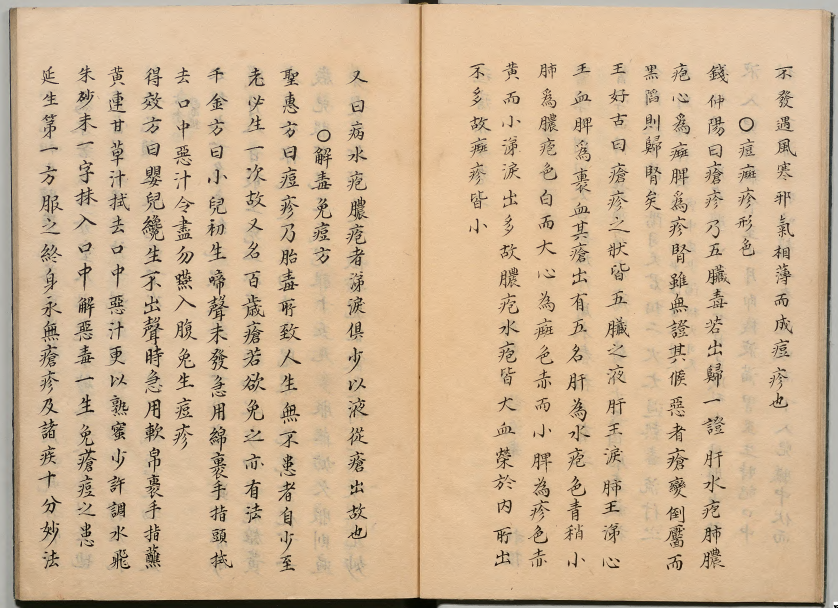 不發遇風寒邪氣相薄而成痘疹也
〇痘癍疹形色
錢仲陽曰瘡疹乃五臟毒若出歸一證肝水疱肺膿
疱心為癍脾為疹腎雖無證其候惡者瘡變倒靨而
黑陷則歸腎矣
王好古曰瘡疹之狀皆五臟之液肝王淚肺王涕心
王血脾為裹血其瘡出有五名肝為水疱色青稍小
肺為膿疱色白而大心為癍色赤而小脾為疹色赤
黄而小涕淚出多故膿疱水疱皆大血榮於内所出
不多故癍疹皆小
又曰病水疱膿疱者涕淚俱少以液從瘡出故也
〇解毒免痘方
聖惠方曰痘疹乃胎毒所致人生無不患者自少至
老必生一次故又名百歲瘡若欲免之亦有法
千金方曰小兒初生啼聲未發急用綿裹手指頭拭
去口中惡汁令盡勿嚥入腹免生痘疹
得效方曰嬰兒纔生不出聲時急用軟帛裹手指蘸
黄連甘草汁拭去口中惡汁更以熟蜜少許調水飛
朱砂末一字抹入口中解惡毒一生免瘡痘之患
延生第一方服之終身永無瘡疹及諸疾十分妙法